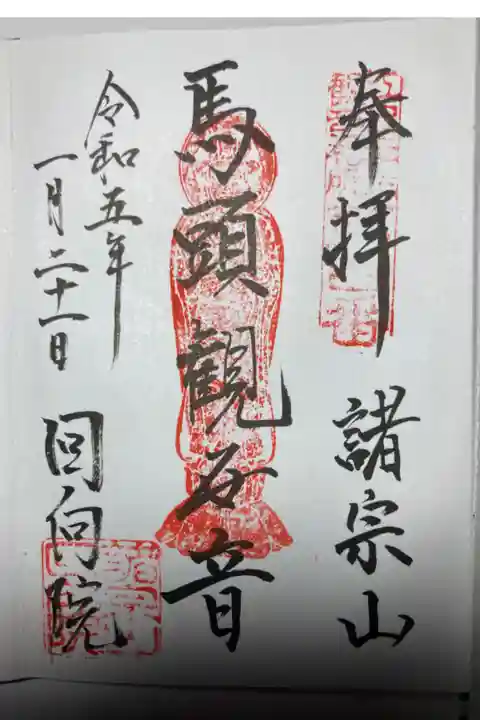 奉拝
諸宗山
馬頭観世音
令和五年
一月二十一日
回向院